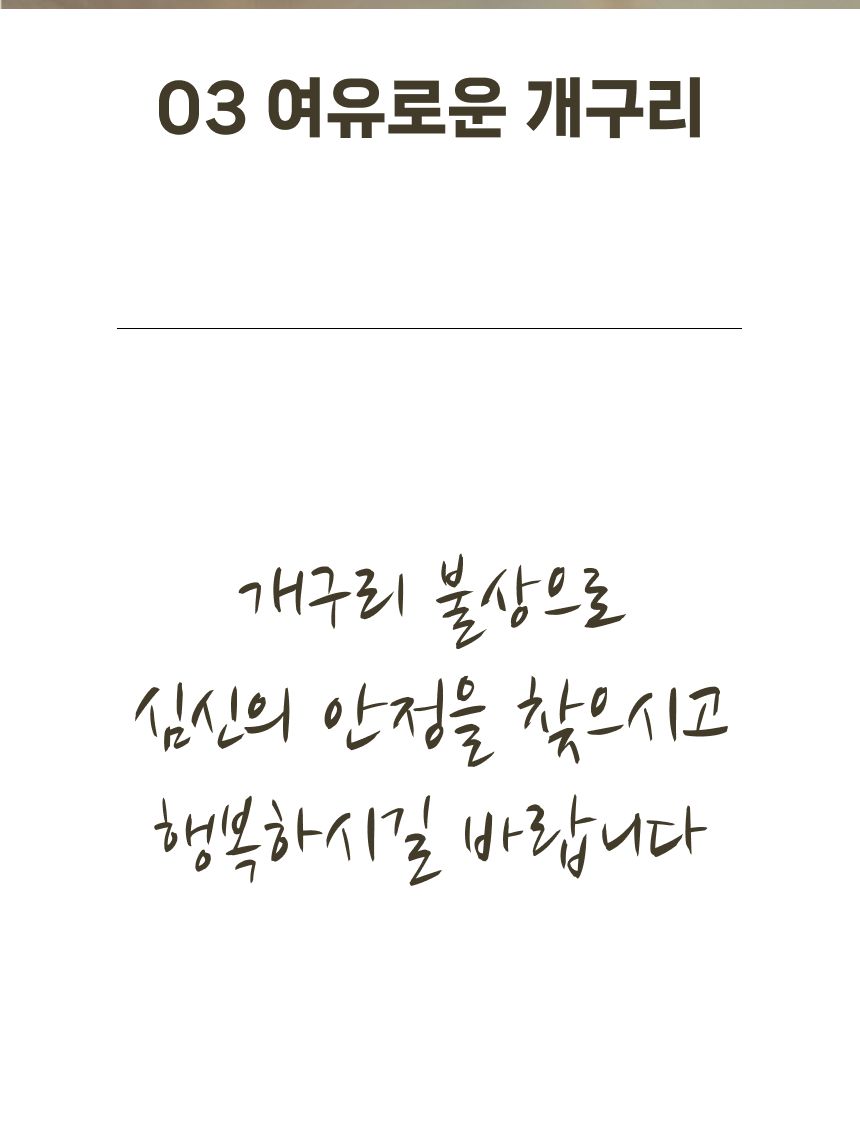 03 여유로운 개구리
개구리 불상으로
심신의 안정을 찾으시고
행복하시길 바랍니다